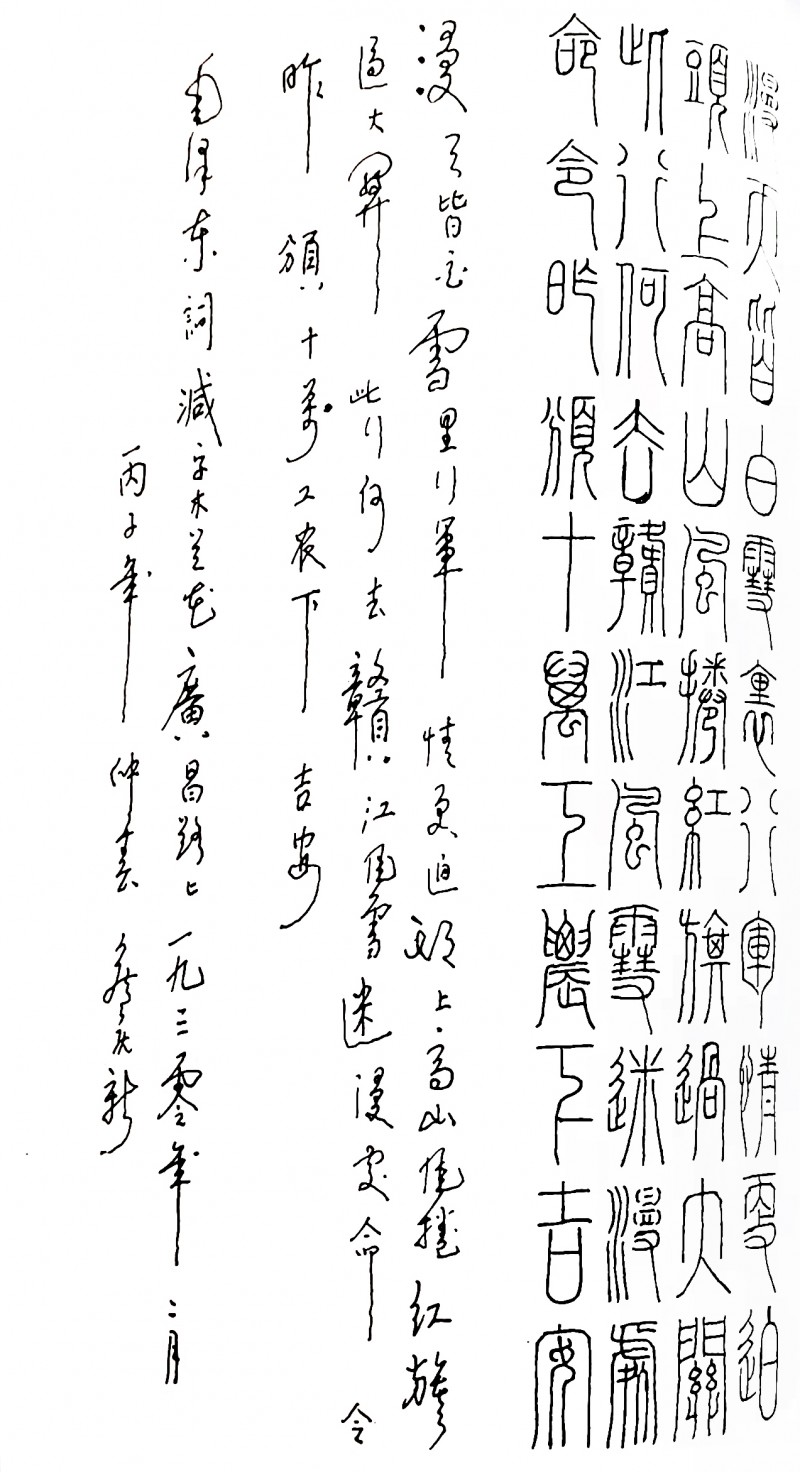 漫天皆白雪裏行軍情更迫
頭上高山風捲紅旗過大關
此行何去贛江風雪迷漫處
命令昨頒十萬工農下吉安
漫天皆白雪里行軍情更迫頭上高山風捲紅旗
過大關此行何去贛江風雪迷漫處命令
昨頒十萬工農下吉安
毛澤東詞減字木蘭花廣昌路上一九三零年二月
丙子年仲春